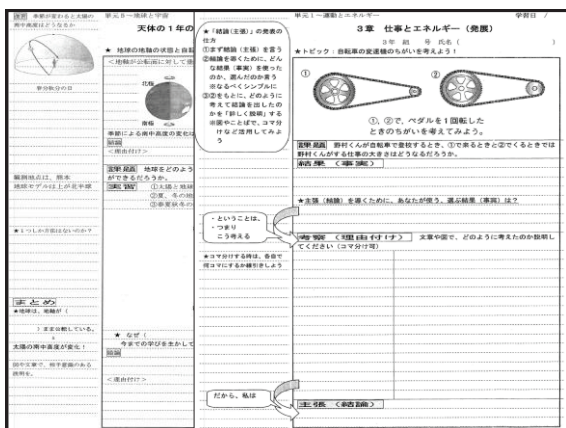 復習 季節が変わると太陽の
南中高度はどうなるか
春分秋分の日
観測地点は、熊本
地球モデルは上が北半球
★1つしか方法はないのか？
まとめ
★地球は、地軸が（
）まま公転している。
太陽の南中高度が変化！
図や文章で、相手意識のある
説明を。
単元5～地球と宇宙
天体の1年の
★ 地球の地軸の状態と自転
＜地軸が公転面に対して垂
北極
南極
季節による南中高度の変化は
結論
＜理由付け＞
課題 地球をどのよう
ができるだろうか。
実習 ①太陽と地球
②夏、冬の地
③春夏秋冬の
★ なぜ（
今までの学びを生かして
結論
＜理由付け＞
★「結論(主張)」の発表の
仕方
①まず結論（主張）を言う
②結論を導くために、どん
な結果（事実）を使った
のか、選んだのか言う
※なるべくシンプルに
③②をもとに、どのように
考えて結論を出したの
かを「詳しく説明」する
※図やことばで、コマ分
けなど活用してみよ
う
・ということは、
・つまり
こう考える
★コマ分けする時は、各自で
何コマにするか線引きしよう
だから、私は
単元1～運動とエネルギー 学習日 /
3章 仕事とエネルギー（発展）
3年 組 号 氏名（ ）
★トピック：自転車の変速機のちがいを考えよう！
① ②
①、②で、ペダルを1回転した
ときのちがいを考えてみよう。
課題 野村くんが自転車で登校するとき、①で来るときと②でくるときでは
野村くんがする仕事の大きさはどうなるだろうか。
結果（事実）
★主張（結論）を導くために、あなたが使う、選ぶ結果（事実）は？
考察（理由付け） 文章や図で、どのように考えたのか説明し
てください（コマ分け可）
主張（結論）